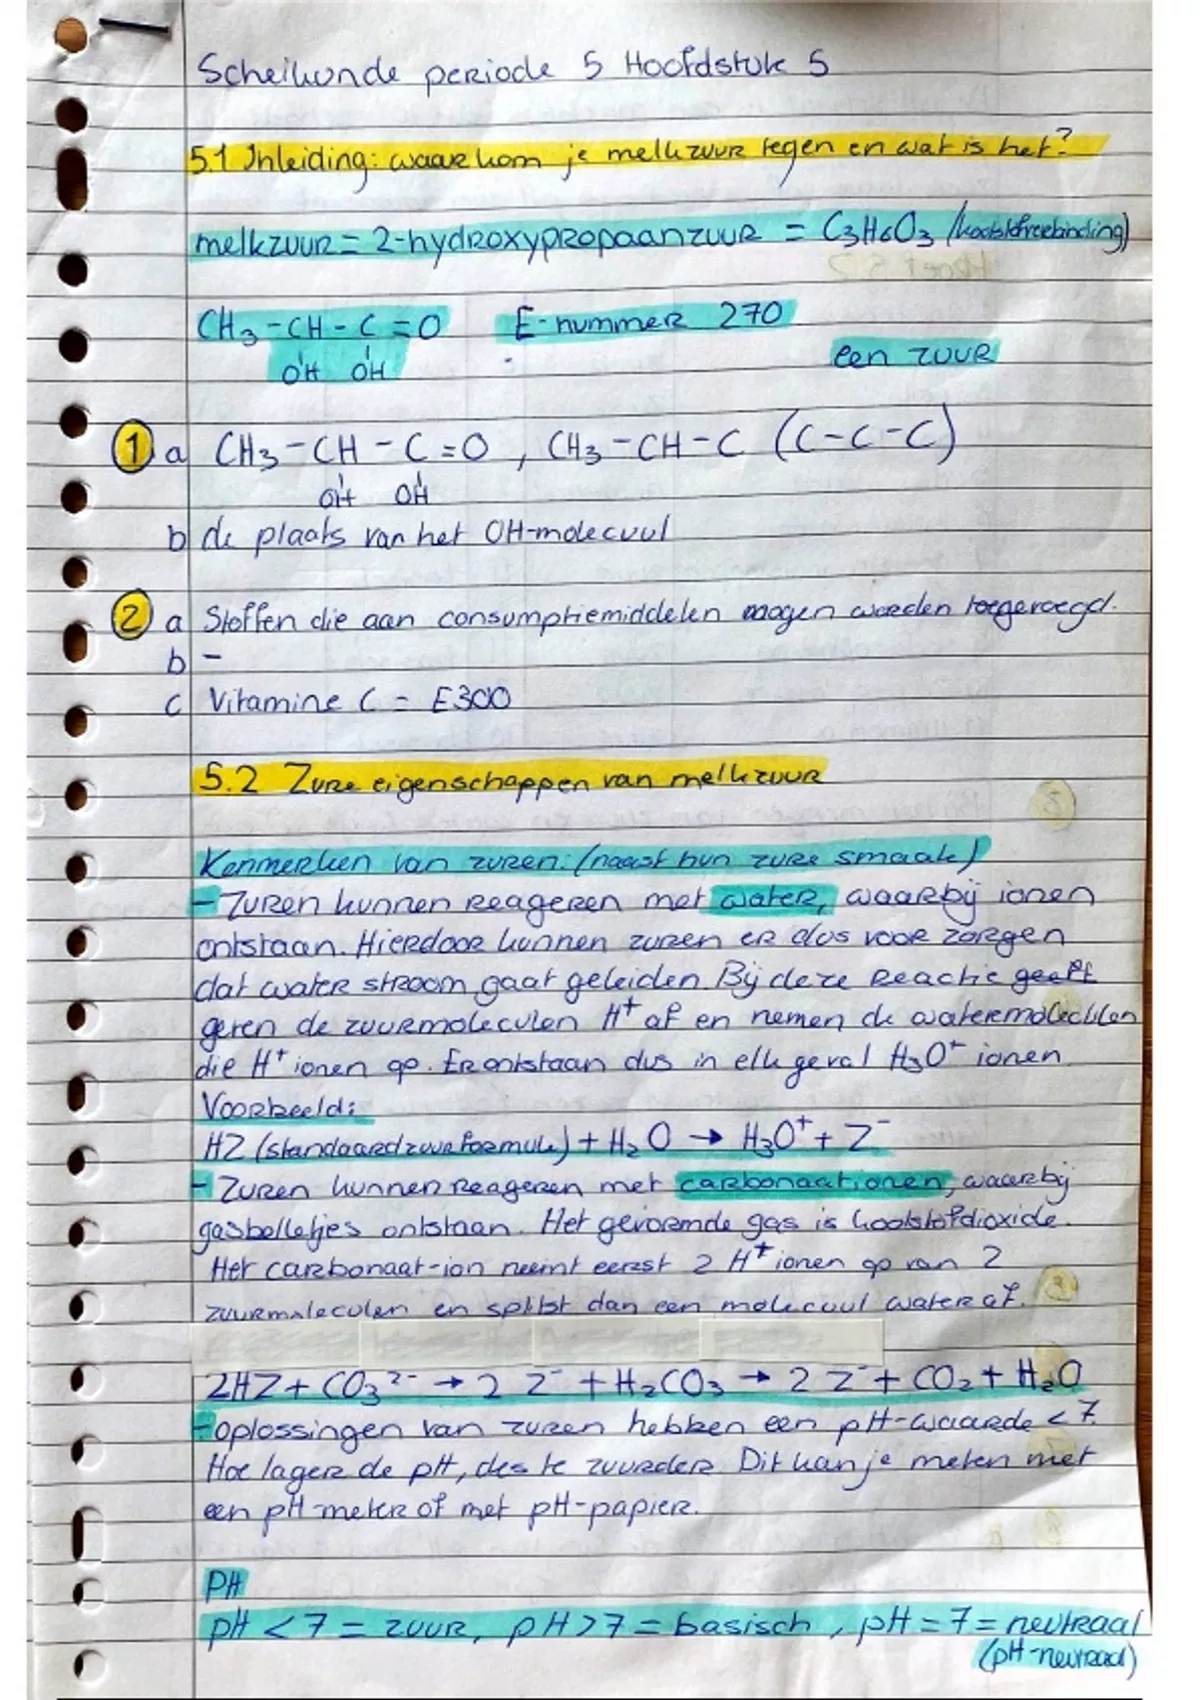 Scheikunde periode 5 Hoofdstuk 5
5.1 Inleiding: waar kom je melkzuur tegen en wat is het?
melkzuur = 2-hydroxypropaanzuur = C3H6O3 (koolstofverbinding)
CH3-CH-C=O E-nummer 270
OH OH een zuur
1 a CH3-CH-C=O, CH3-CH-C (C-C-C)
OH OH
b de plaats van het OH-molecuul
2 a Stoffen die aan consumptiemiddelen mogen worden toegevoegd.
b -
c Vitamine C = E300
5.2 Zure eigenschappen van melkzuur
Kenmerken van zuren: (naast hun zure smaak)
- Zuren kunnen reageren met water, waarbij ionen
ontstaan. Hierdoor kunnen zuren er dus voor zorgen
dat water stroom gaat geleiden. Bij deze reactie geeft
geven de zuurmoleculen H+ af en nemen de watermoleculen
die H+ ionen op. Er ontstaan dus in elk geval H3O+ ionen.
Voorbeeld:
HZ (standaardzuurformule) + H2O → H3O+ + Z-
- Zuren kunnen reageren met carbonaationen, waarbij
gasbelletjes ontstaan. Het gevormde gas is koolstofdioxide.
Het carbonaat-ion neemt eerst 2 H+ ionen op van 2
zuurmoleculen en splitst dan een molecuul water af.
2HZ + CO3 2- → 2 Z- + H2CO3 → 2 Z- + CO2 + H2O
- oplossingen van zuren hebben een pH-waarde < 7.
Hoe lager de pH, des te zuurder. Dit kan je meten met
een pH-meter of met pH-papier.
PH
pH < 7 = zuur, pH > 7 = basisch, pH = 7 = neutraal
(pH-neutraal)